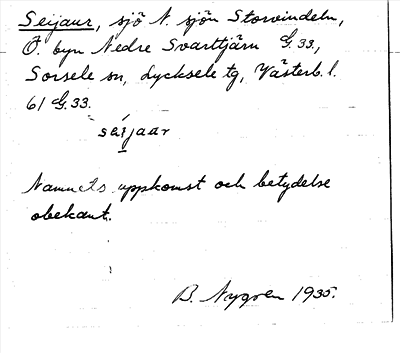 Seijaur, sjö N. sjön Storvindeln,
Ö. byn Nedre Svarttjärn G.33.,
Sorsele sn, Lycksele tg, Västerb. l.
61 G.33.
sɛijaar
Namnets uppkomst och betydelse
obekant.
B. Nygren 1935.